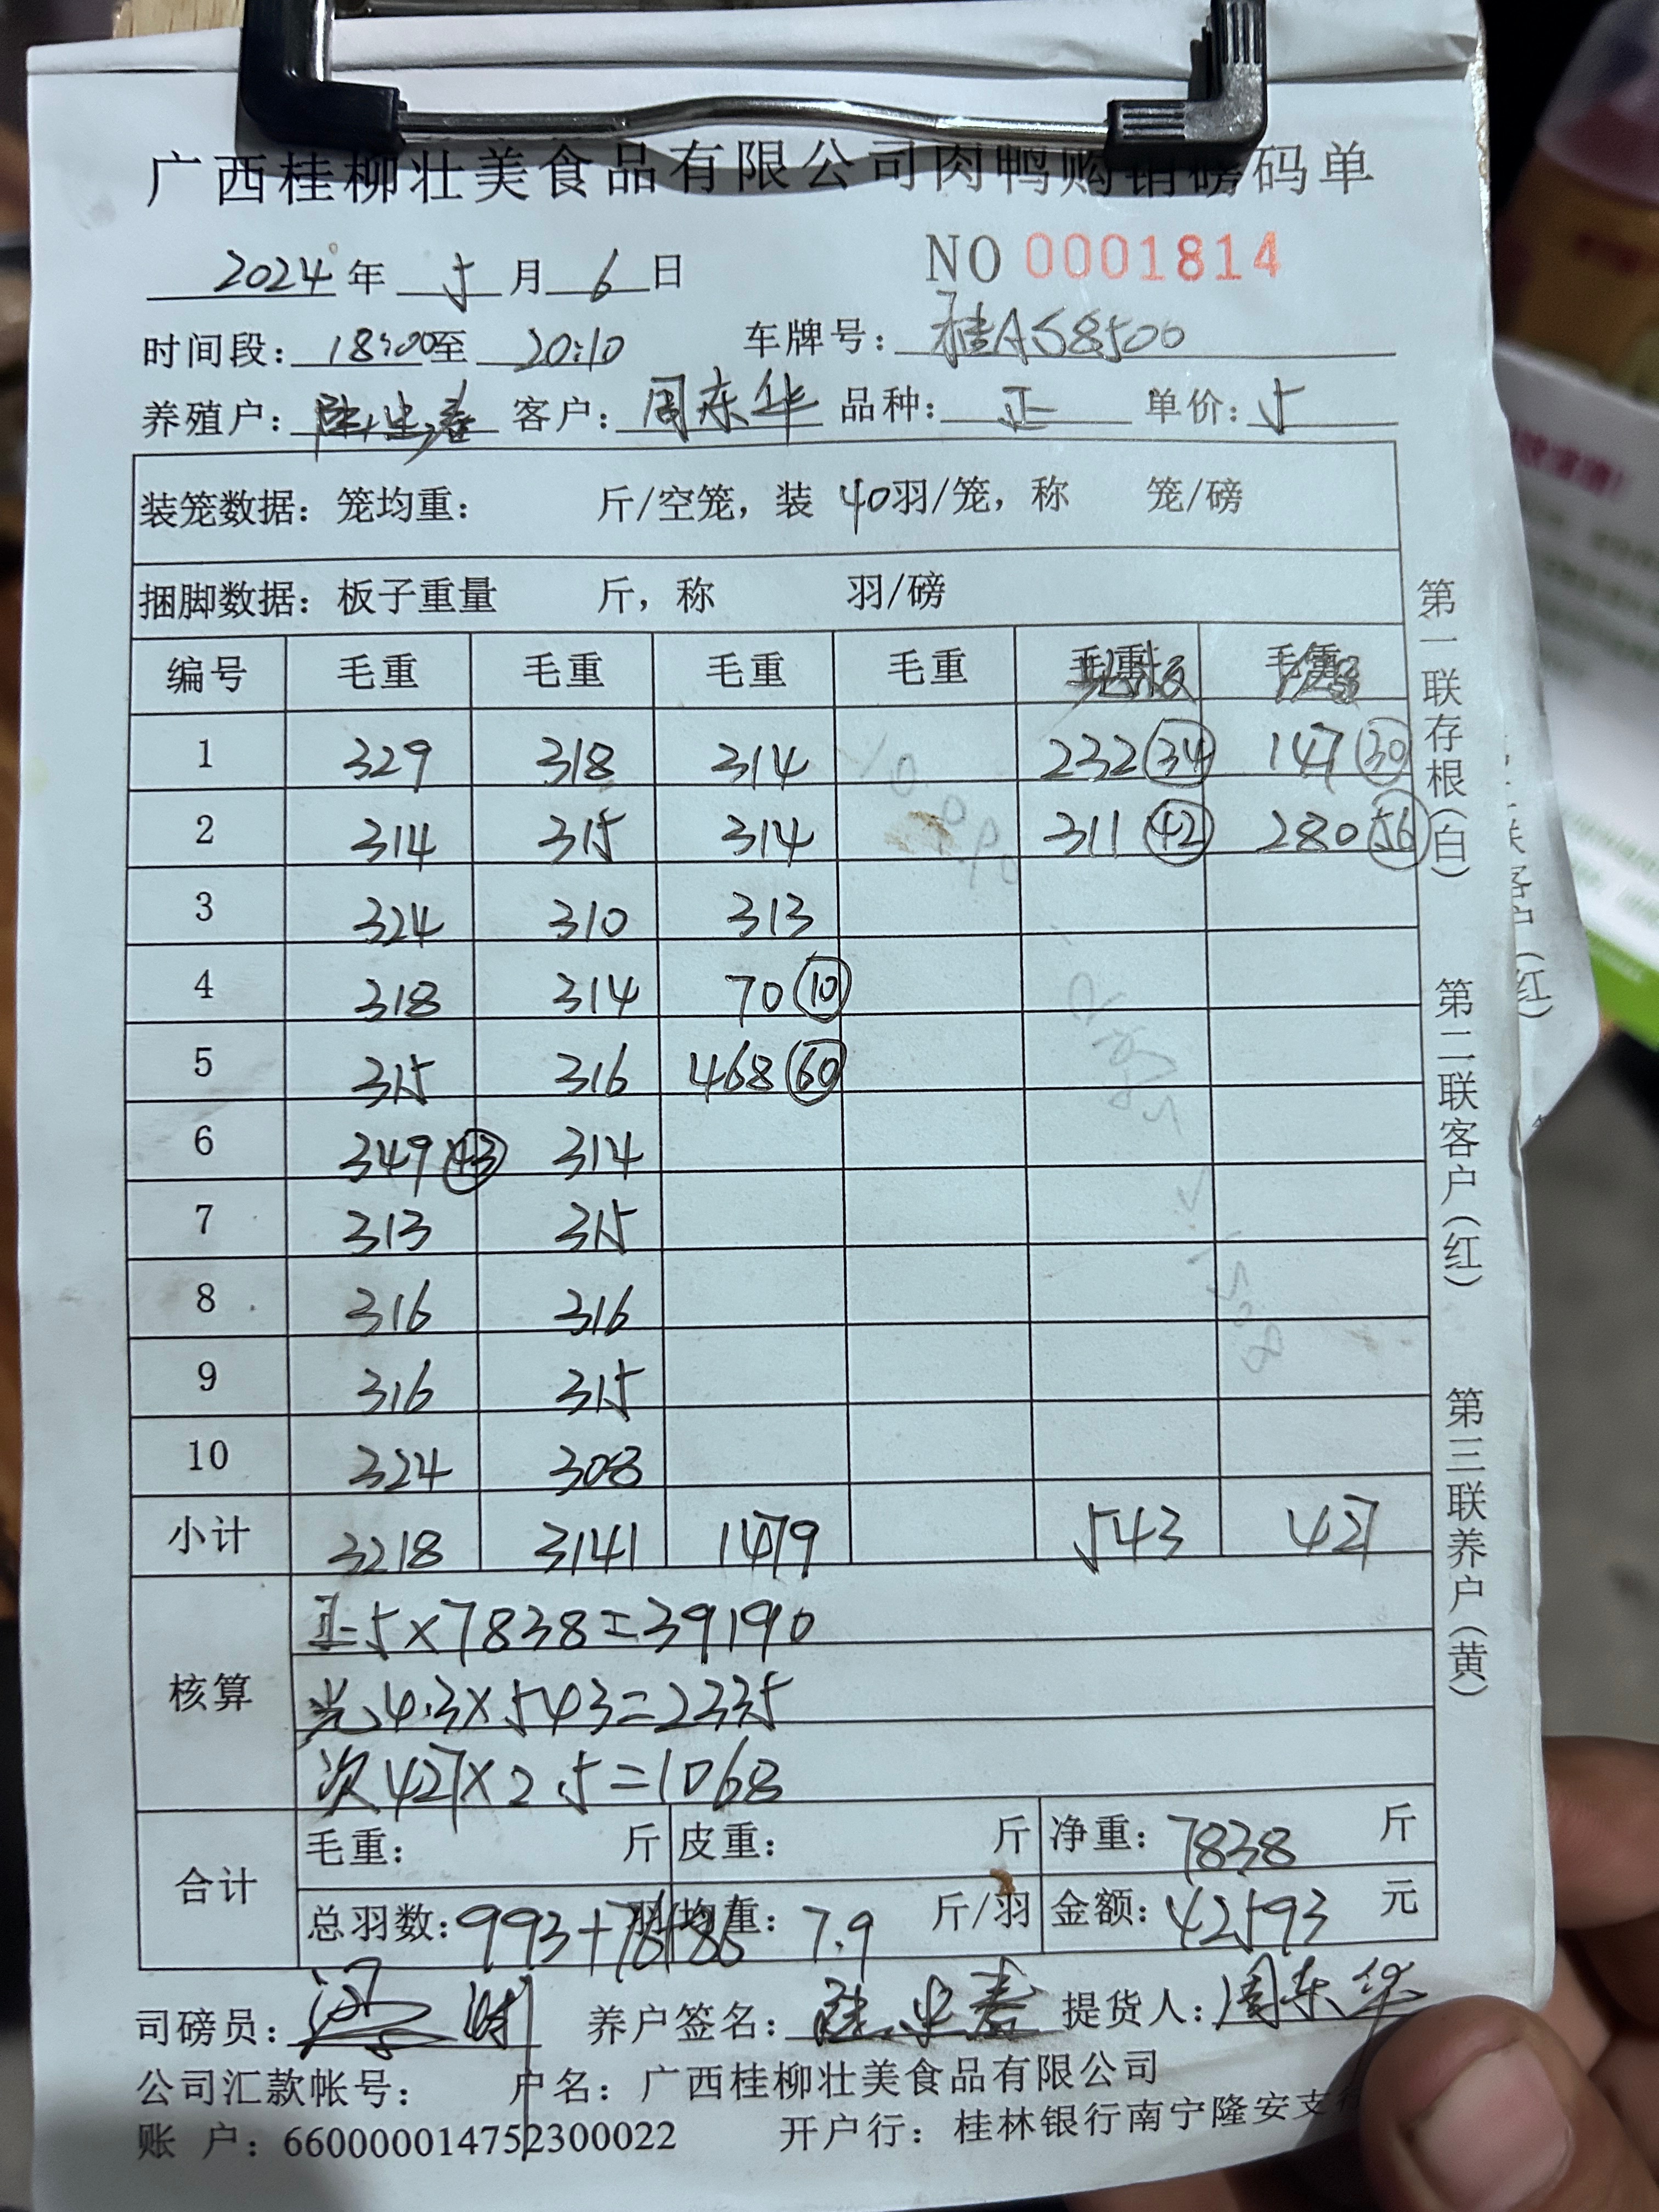 广西桂柳壮美食品有限公司肉鸭购销磅码单
2024年 5月 6日 NO 0001814
时间段: 18:00至 20:10 车牌号: 桂A58500
养殖户: 客户: 周东华 品种: 正 单价: 5
装笼数据: 笼均重: 斤/空笼, 装 40羽/笼, 称 笼/磅
捆脚数据: 板子重量 斤, 称 羽/磅
编号 毛重 毛重 毛重 毛重 毛重 毛重
1 329 318 314 232 34 147 30
2 314 315 314 311 42 280 56
3 324 310 313
4 318 314 70 10
5 315 316 468 60
6 349 43 314
7 313 315
8 316 316
9 316 315
10 324 308
小计 3218 3141 1479 543 427
核算
正 5×7838=39190
光 4.3×543=2335
次 427×2.5=1068
合计
毛重: 斤 皮重: 斤 净重: 7838 斤
总羽数: 993+76+86 羽 均重: 7.9 斤/羽 金额: 42593 元
司磅员: 养户签名: 提货人: 周东华
公司汇款帐号: 户名: 广西桂柳壮美食品有限公司
账 户: 660000014752300022 开户行: 桂林银行南宁隆安支行
第一联存根(白)
第二联客户(红)
第三联养户(黄)